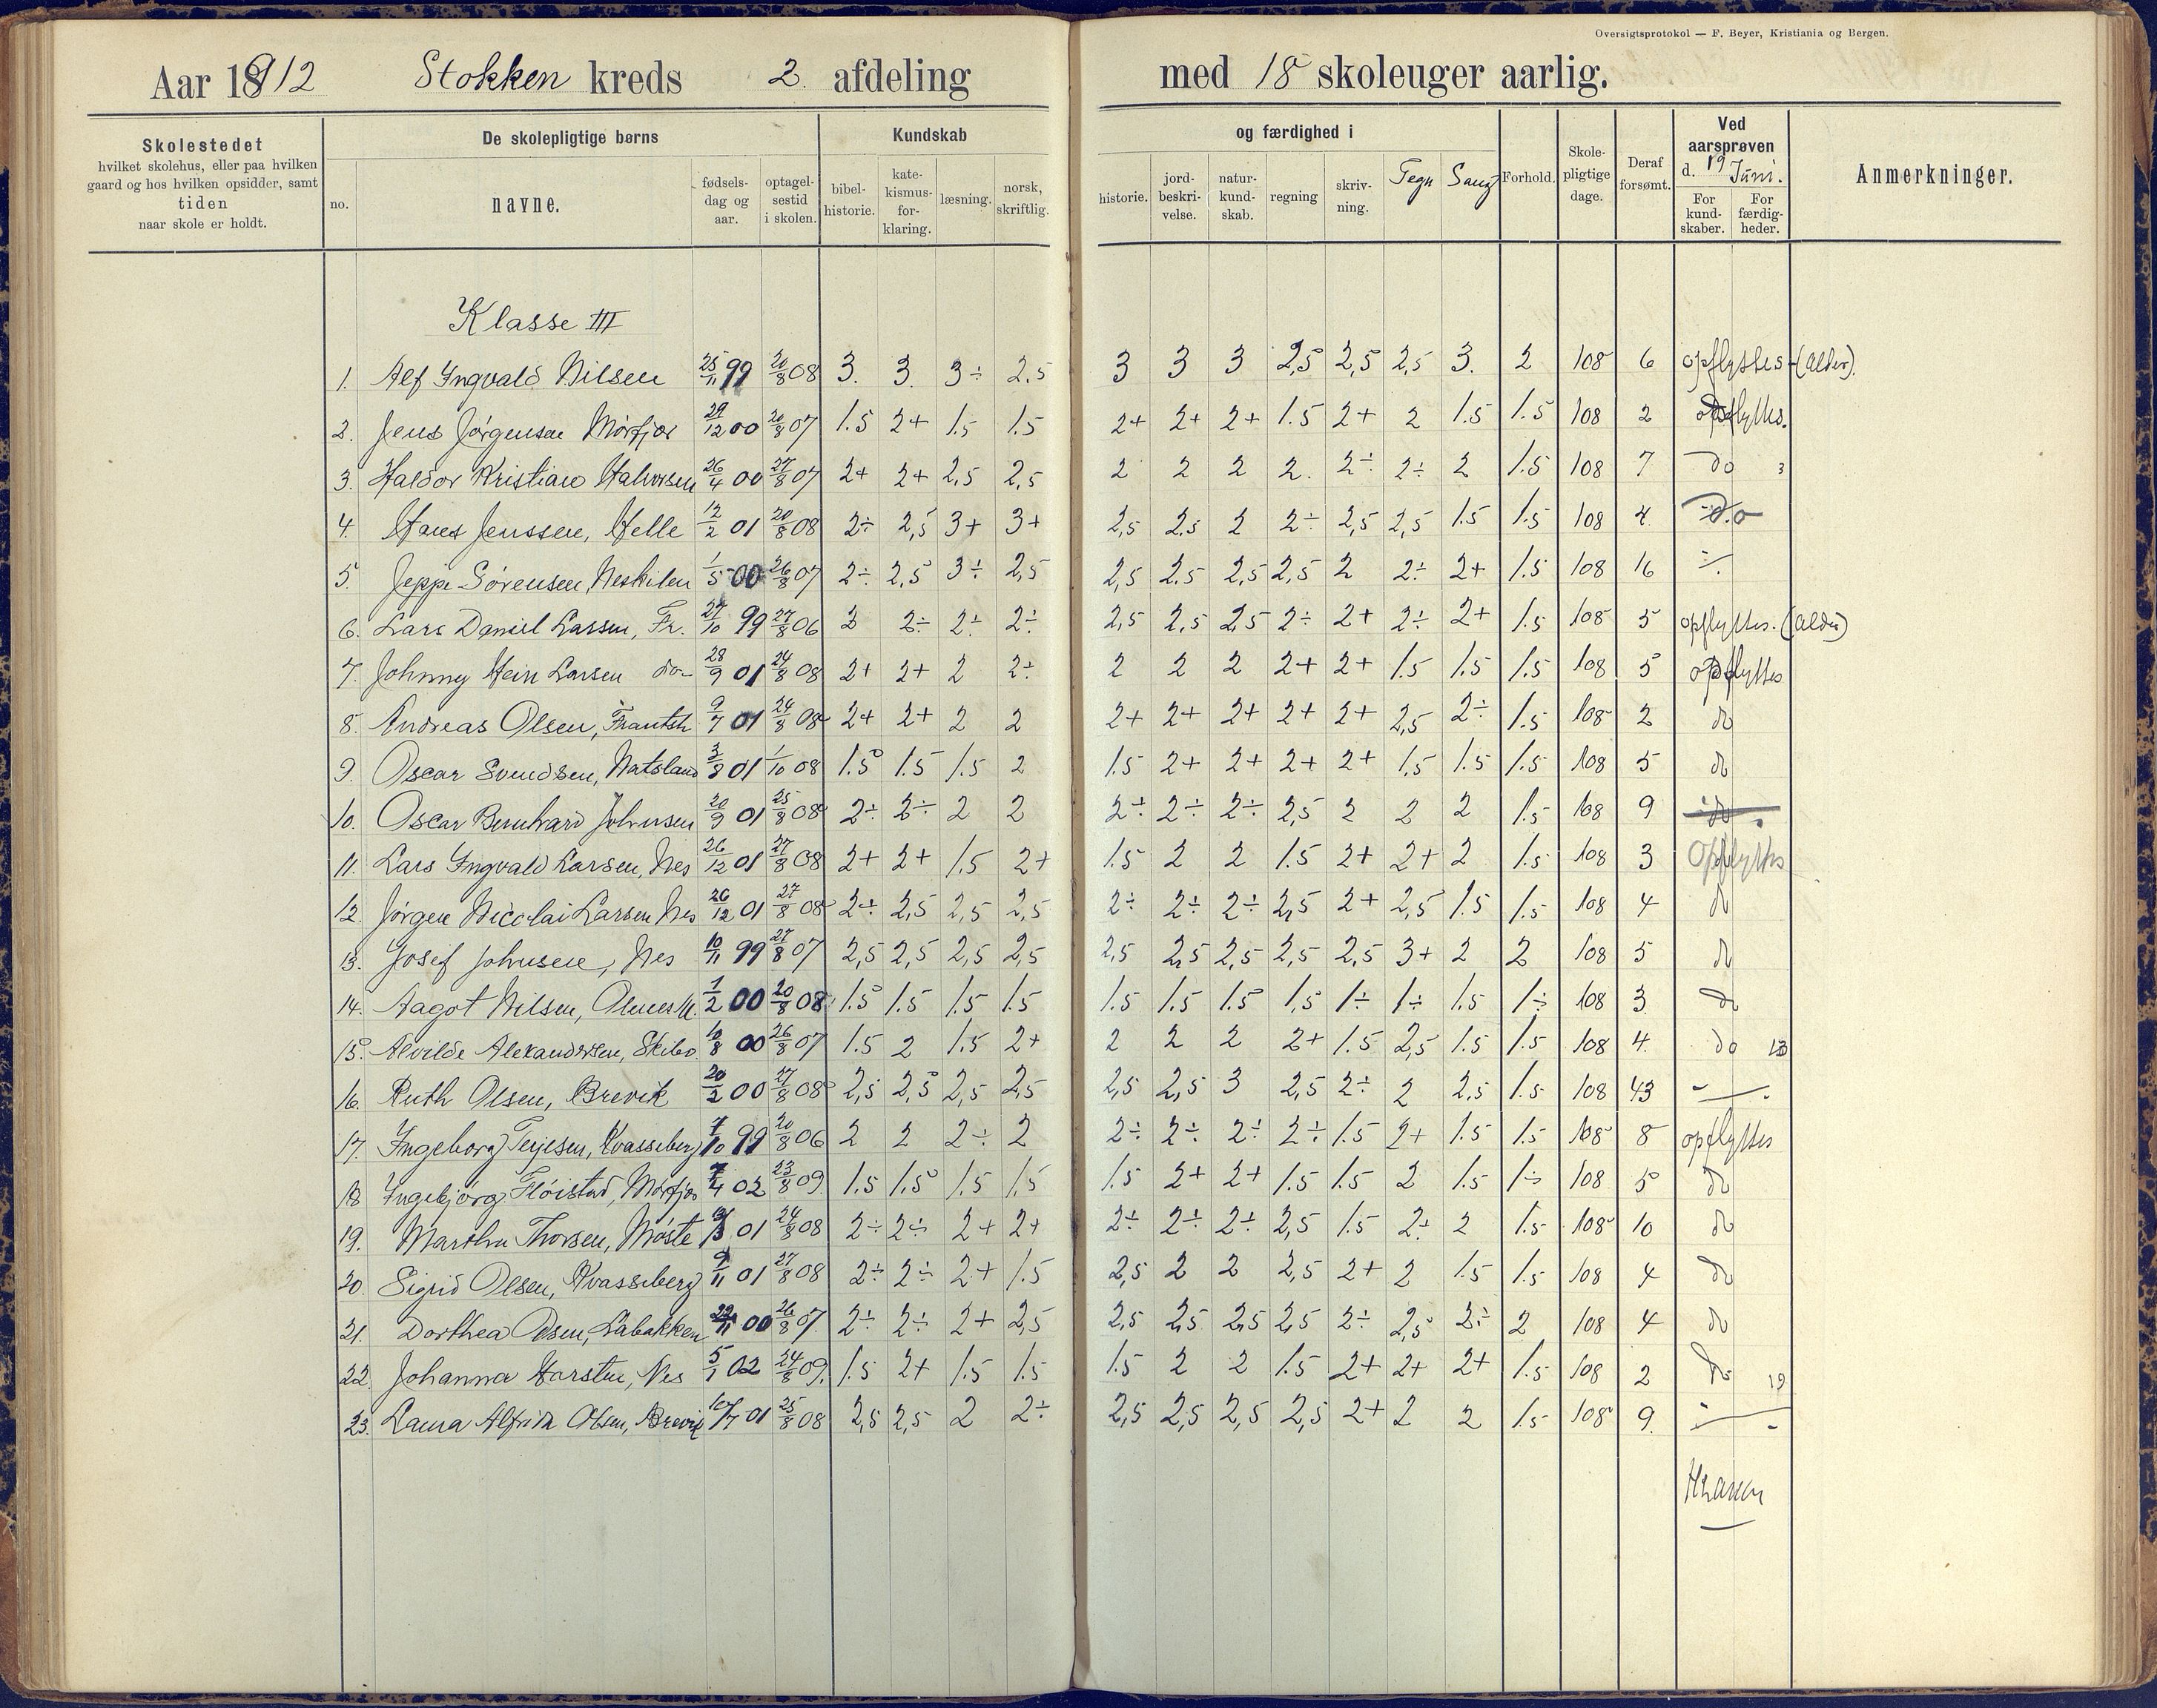 Oversigtsprotokol — F. Beyer, Kristiania og Bergen.
Aar 1912 Stokken kreds 2. afdeling med 18 skoleuger aarlig.
Skolestedet
hvilket skolehus, eller paa hvilken
gaard og hos hvilken opsidder, samt
tiden
naar skole er holdt.
De skolepligtige børns
no.
navne.
fødsels-
dag og
aar.
optagel-
sestid
i skolen.
Kundskab
bibel-
historie.
kate-
kismus-
for-
klaring.
læsning.
norsk,
skriftlig.
og færdighed i
historie.
jord-
beskri-
velse.
natur-
kund-
skab.
regning
skriv-
ning.
Tegn
Sang
Forhold.
Skole-
pligtige
dage.
Deraf
forsømt.
Ved
aarsprøven
d. 19 Juni.
For
kund-
skaber.
For
færdig-
heder.
Anmerkninger.
Klasse III
1. Alf Ingvald Nilsen 25/11 99 20/8 08 3. 3. 3÷ 2.5 3 3 3 2,5 2,5 2,5 3. 2 108 6 opflyttes (alder).
2. Jens Jørgensen Mørfjær 29/12 00 20/8 07 1.5 2+ 1.5 1.5 2+ 2+ 2+ 1.5 2+ 2 1.5 1.5 108 2 opflyttes.
3. Haldor Kristian Halvorsen 26/4 00 27/8 07 2+ 2+ 2,5 2,5 2 2 2 2. 2÷ 2÷ 2 1.5 108 7 do 3
4. Hans Jenssen, Helle 12/2 01 20/8 08 2÷ 2,5 3+ 3+ 2,5 2,5 2 2÷ 2,5 2,5 1.5 1.5 108 4. do
5. Jeppe Sörensen, Neskilen 1/5 00 26/8 07 2÷ 2,5 3÷ 2,5 2,5 2.5 2,5 2,5 2 2÷ 2+ 1.5 108 16 ÷
6. Lars Daniel Lassen, Fr. 27/10 99 27/8 06 2 2÷ 2÷ 2÷ 2,5 2,5 2,5 2÷ 2+ 2÷ 2+ 1.5 108 5 opflyttes. (alder)
7. Johnny Hein Larsen do 28/9 01 24/8 08 2+ 2+ 2 2÷ 2 2 2 2+ 2+ 1.5 1.5 1.5 108 5 opflyttes
8. Andreas Olsen, 9/7 01 24/8 08 2+ 2+ 2 2 2+ 2+ 2+ 2+ 2+ 2,5 2÷ 1.5 108 2 do
9. Oscar Svendsen, Natsland 3/8 01 1/10 08 1.5 1.5 1.5 2 1.5 2+ 2+ 2+ 2+ 1.5 1.5 1.5 108 5 do
10. Oscar Bernhard Johnsen 20/9 01 25/8 08 2÷ 2÷ 2 2 2÷ 2÷ 2÷ 2,5 2 2 2 1.5 108 9 do
11. Lars Ingvald Larsen, Nes 26/12 01 27/8 08 2+ 2+ 1.5 2+ 1.5 2 2 1.5 2+ 2+ 2 1.5 108 3 Opflyttes
12. Jörgen Nicolai Larsen Nes 26/12 01 27/8 08 2÷ 2,5 2,5 2,5 2÷ 2÷ 2÷ 2,5 2+ 2,5 1.5 1.5 108 4 do
13. Josef Johnsen, Nes 10/11 99 27/8 07 2,5 2,5 2,5 2,5 2,5 2,5 2,5 2,5 2,5 3+ 2 2 108 5 do
14. Aagot Nilsen, 1/2 00 20/8 08 1.5 1.5 1.5 1.5 1.5 1.5 1.5 1,5 1÷ 1÷ 1.5 1÷ 108 3 do
15. Alvilde Alexandersen, Skibv. 10/8 00 26/8 07 1.5 2 1.5 2+ 2 2 2 2+ 1.5 2,5 1.5 1.5 108 4. do 13
16. Ruth Olsen, Brevik 20/2 00 27/8 08 2,5 2,5 2,5 2,5 2,5 2,5 3 2,5 2÷ 2 2,5 1.5 108 43 -
17. Ingeborg Terjesen, Kvasseberg 7/10 99 20/8 06 2 2 2÷ 2 2÷ 2÷ 2÷ 2÷ 1.5 2+ 1.5 1.5 108 8 opflyttes
18 Ingebjörg Flöistad, Mørfjær 7/4 02 23/8 09 1.5 1.5 1.5 1.5 1.5 2+ 2+ 1.5 1.5 2 1.5 1÷ 108 5 do
19. Martha Thorsen, Møste 01 24/8 08 2÷ 2÷ 2+ 2+ 2÷ 2÷ 2÷ 2,5 1.5 2÷ 2 1.5 108 10 do
20. Sigrid Olsen, Kvasseberg 9/11 01 27/8 08 2÷ 2÷ 2+ 1.5 2,5 2 2 2,5 2+ 2 1.5 1.5 108 4 do
21. Dorthea Olsen, Labakken 22/11 00 26/8 07 2÷ 2÷ 2+ 2,5 2,5 2,5 2,5 2,5 2÷ 2,5 2÷ 2 108 4 do
22. Johanna Karstne, Nes 5/1 02 24/8 09. 1.5 2+ 1.5 1.5 1.5 2 2 1.5 2+ 2+ 2+ 1.5 108 2 do 19
23. Laura Alfrida Olsen, Brevik 10/7 01 25/8 08 2,5 2,5 2 2÷ 2,5 2,5 2,5 2,5 2+ 2 2 1.5 108 9. -